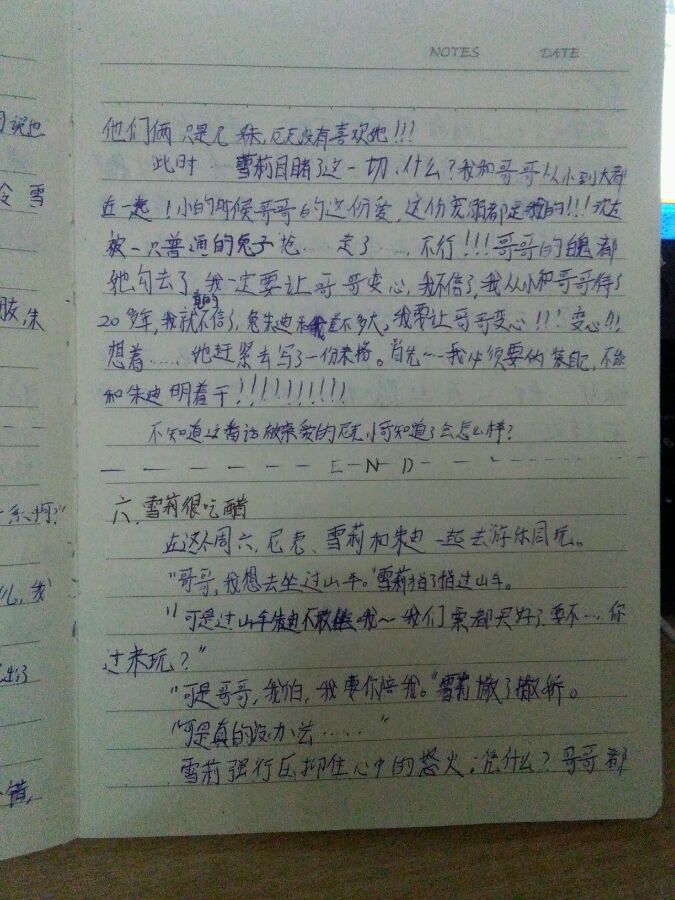 NOTES DATE
他们俩只是兄妹,尼克没有喜欢她!!!
此时 雪莉目睹了这一切,什么?我和哥哥从小到大都
在一起!小的时候哥哥的这份爱,这份宠溺都是我的!!!现在
被一只普通的兔子抢……走了……,不行!!!哥哥的魂都
她勾去了,我一定要让哥哥变心,我不信了,我从小和哥哥待了
20多年,我就真的不信了,兔朱迪和我差不多大,我要让哥哥变心!!!变心!!!
想着……她赶紧去写了一份表格。首先~~我必须要伪装自己,不能
和朱迪明着干!!!!!!!!!!
不知道这番话被亲爱的尼克 知道了会怎么样?
END
六、雪莉很吃醋
在这个周六,尼克、雪莉和朱迪一起去游乐园玩。
"哥哥,我想去坐过山车。"雪莉指了指过山车。
"可是过山车朱迪不敢 哦~我们票都买好了要不…你
过来玩?"
"可是哥哥,我怕,我要你陪我。"雪莉撒了撒娇。
"可是真的没办法……"
雪莉强行压抑住心中的怒火,凭什么?哥哥都
冷 雪
朱
系啊,"
我
错,